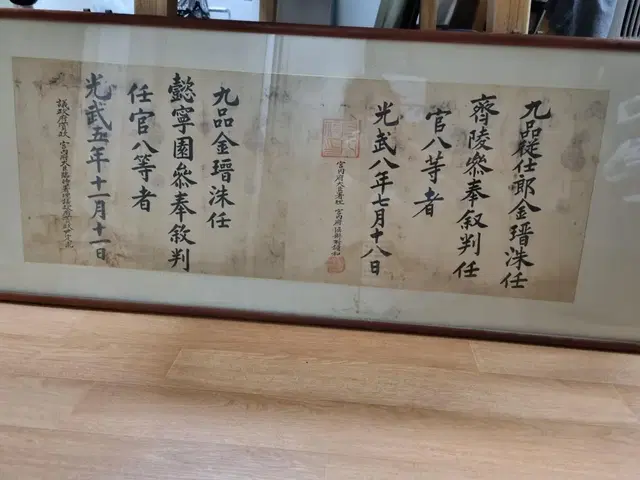 九品從仕郎金瑨洙任
齊陵參奉敘判任
官八等者
光武八年七月十八日
宮內府大臣署理 宮內府協辦
九品金瑨洙任
懿寧園參奉敘判
任官八等者
光武五年十一月十一日
議政府贊政 宮內府大臣臨時署理議政府贊政